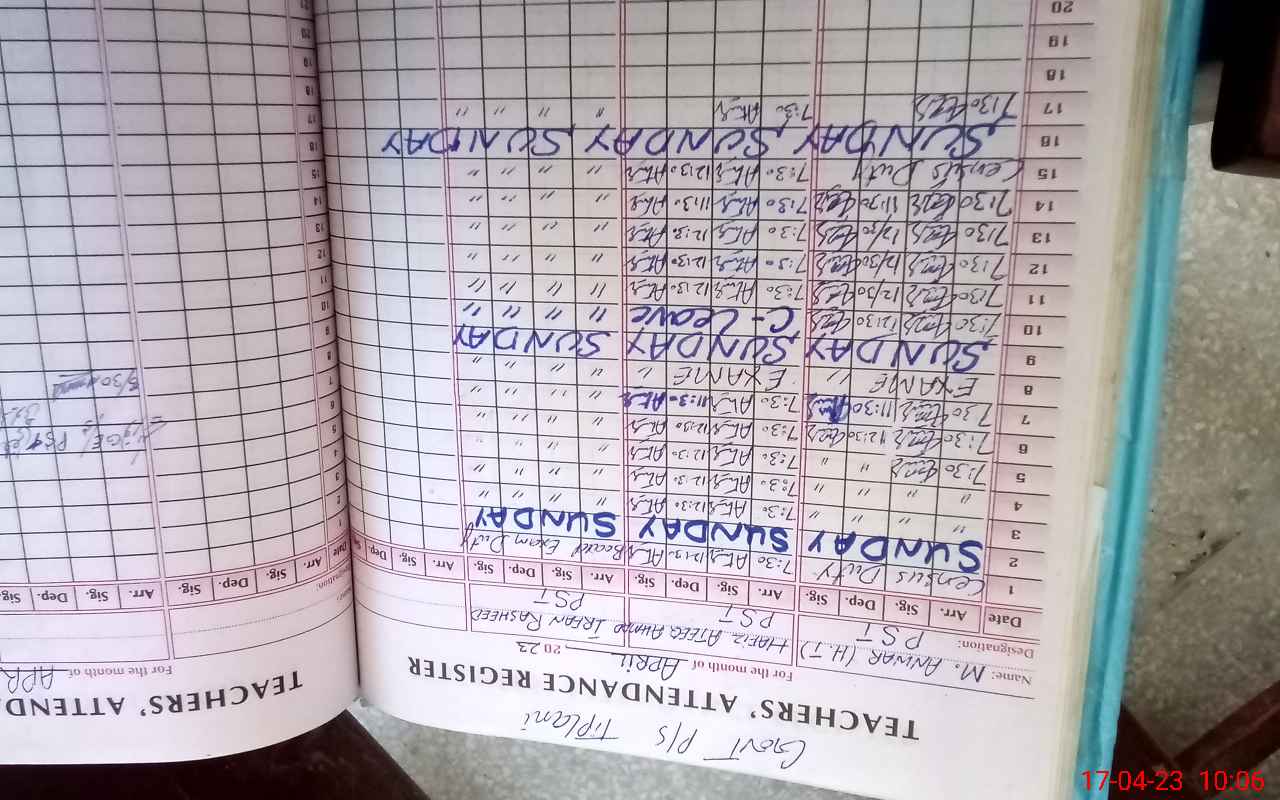 GOVT P/S Tiplani
TEACHERS' ATTENDANCE REGISTER
For the month of APRIL 2023
Name: M. ANWAR (H.T) HAFIZ ATEEQ AHMAD IRFAN RASHEED
Designation: PST PST PST
Date Arr. Sig. Dep. Sig. Arr. Sig. Dep. Sig. Arr. Sig. Dep. Sig. Arr. Sig. Dep.
1 Census Duty 7:30 12:30 Board Exam Duty
2 SUNDAY SUNDAY SUNDAY
3 " " " " 7:30 12:30 " " " "
4 " " " " 7:30 12:30 " " " "
5 7:30 " " 7:30 12:30 " " " "
6 7:30 12:30 7:30 12:30 " " " "
7 7:30 11:30 7:30 11:30 " " " "
8 EXAME " EXAME " " " " "
9 SUNDAY SUNDAY SUNDAY
10 7:30 12:30 C-Leave " " " "
11 7:30 12/30 7:30 12:30 " " " "
12 7:30 12/30 7:30 12:30 " " " "
13 7:30 12/30 7:30 12:30 " " " "
14 7:30 11:30 7:30 11:30 " " " "
15 Census Duty 7:30 12:30 " " " "
16 SUNDAY SUNDAY SUNDAY SUNDAY
17 7:30 7:30 " " " "
18
19
20
TEACHERS' ATTENDA
For the month of APR
Arr. Sig. Dep. Sig. Arr. Sig. Dep. Sig.
17-04-23 10:06